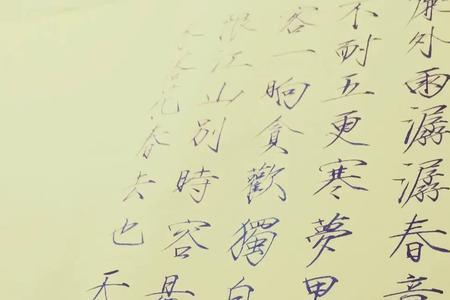 外雨潺潺春意
不耐五更寒夢里
客一晌貪歡獨自
限江山別時容易
水落花春去也天